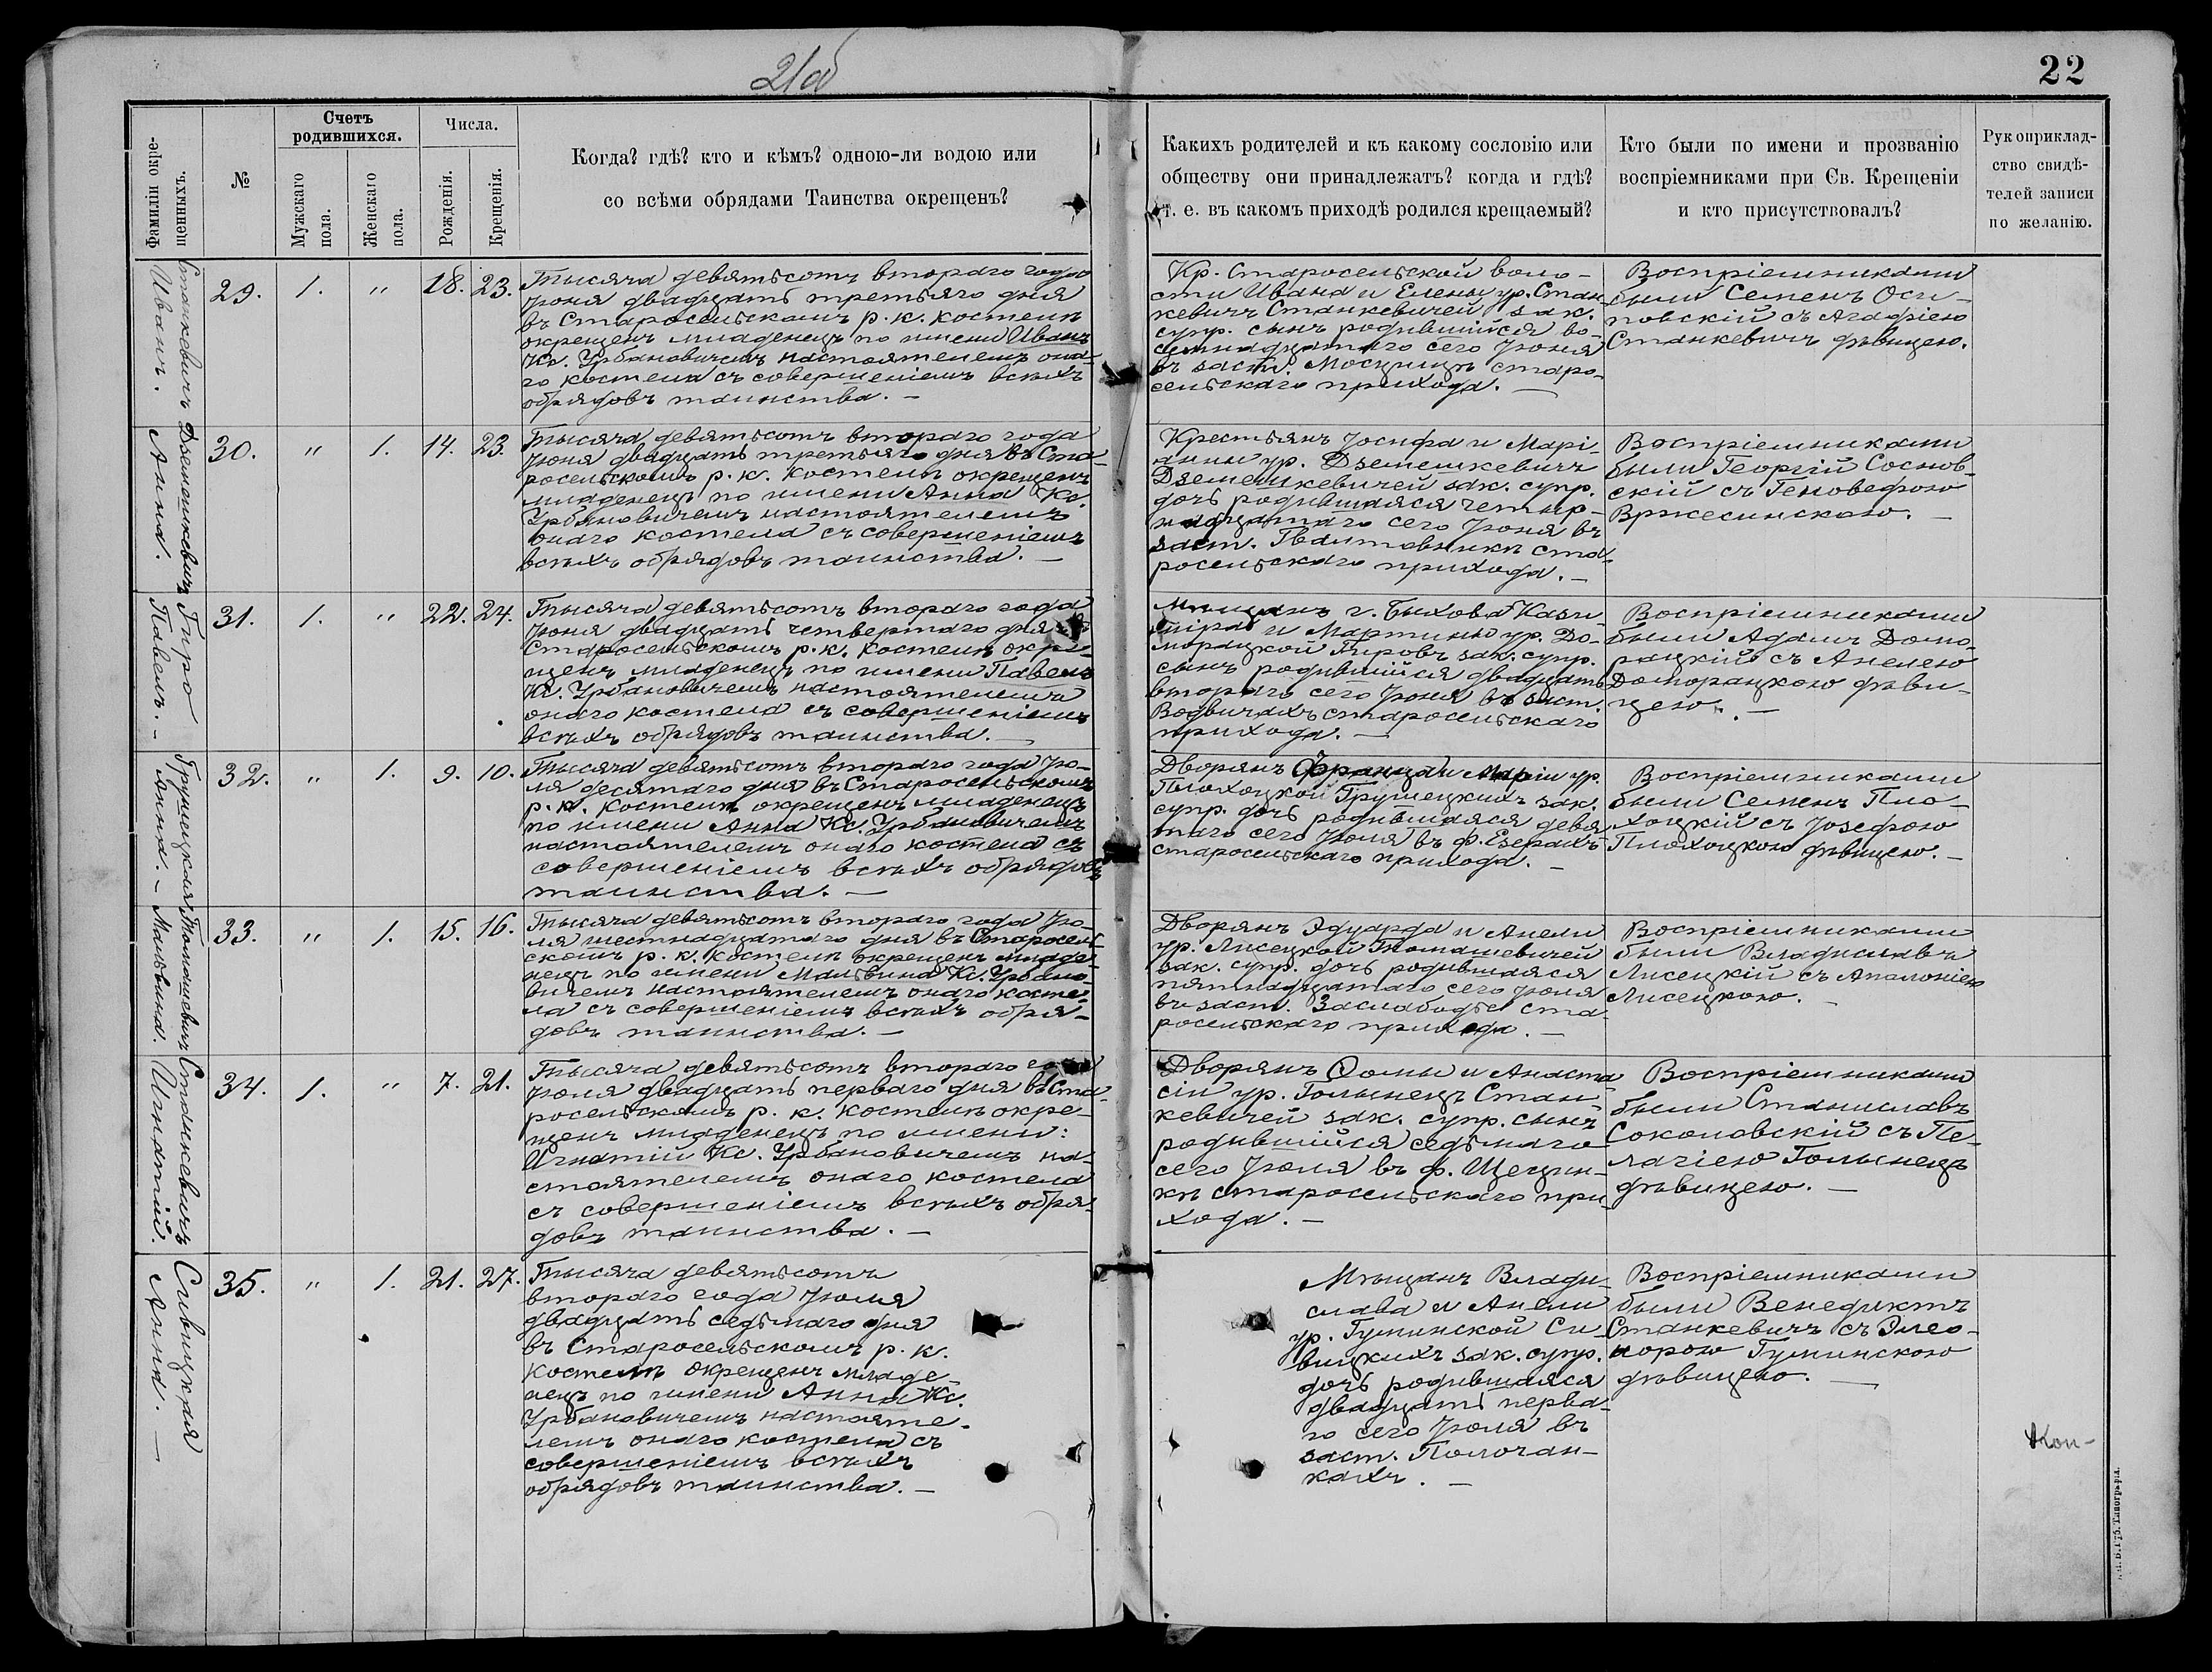 21об
22
Фамиліи окре-
щенныхъ.
№
Счетъ
родившихся.
Мужскаго
пола.
Женскаго
пола.
Числа.
Рожденія.
Крещенія.
Когда? гдѣ? кто и кѣмъ? одною-ли водою или
со всѣми обрядами Таинства окрещенъ?
Какихъ родителей и къ какому сословію или
обществу они принадлежатъ? когда и гдѣ?
т. е. въ какомъ приходѣ родился крещаемый?
Кто были по имени и прозванію
воспріемниками при Св. Крещеніи
и кто присутствовалъ?
Рукоприклад-
ство свидѣ-
телей записи
по желанію.
Станкевичъ
Иванъ.
29. 1. " 18. 23.
Тысяча девятьсотъ второго года
Іюня двадцать третьяго дня
въ Старосельскомъ р. к. костелѣ
окрещенъ младенецъ по имени Иванъ
Кс. Урбановичемъ настоятелемъ она-
го костела съ совершеніемъ всѣхъ
обрядовъ таинства. —
Кр. Старосельской воло-
сти Ивана и Елены ур. Стан-
кевичъ Станкевичей зак.
супр. сынъ родившійся во-
семнадцатаго сего Іюня
въ заст. Мосцищѣ старо-
сельскаго прихода. —
Воспріемниками
были Семенъ Оси-
повскій съ Агафіею
Станкевичъ дѣвицею.
Дземешкевичъ
Анна.
30. " 1. 14. 23.
Тысяча девятьсотъ второго года
Іюня двадцать третьяго дня въ Ста-
росельскомъ р. к. костелѣ окрещенъ
младенецъ по имени Анна Кс.
Урбановичемъ настоятелемъ
онаго костела съ совершеніемъ
всѣхъ обрядовъ таинства. —
Крестьянъ Іосифа и Марі-
анны ур. Дземешкевичъ
Дземешкевичей зак. супр.
дочь родившаяся четыр-
надцатаго сего Іюня въ
заст. ста-
росельскаго прихода. —
Воспріемниками
были Георгій Соснов-
скій съ Геновефою
Вржесинскою. —
Гиро
Павелъ. —
31. 1. " 22. 24.
Тысяча девятьсотъ второго года
Іюня двадцать четвертаго дня въ
Старосельскомъ р. к. костелѣ окре-
щенъ младенецъ по имени Павелъ
Кс. Урбановичемъ настоятелемъ
онаго костела съ совершеніемъ
всѣхъ обрядовъ таинства. —
Мѣщанъ г. Быхова Кази-
міра и Мартины ур. До-
морацкой Гировъ зак. супр.
сынъ родившійся двадцать
второго сего Іюня въ заст.
Водвичахъ старосельскаго
прихода. —
Воспріемниками
были Адамъ Домо-
рацкій съ Анелею
Доморацкою дѣви-
цею. —
Грушецкая
Анна. —
32. " 1. 9. 10.
Тысяча девятьсотъ второго года Ію-
ля десятаго дня въ Старосельскомъ
р. к. костелѣ окрещенъ младенецъ
по имени Анна Кс. Урбановичемъ
настоятелемъ онаго костела съ
совершеніемъ всѣхъ обрядовъ
таинства. —
Дворянъ Франца и Маріи ур.
Плохоцкой Грушецкихъ зак.
супр. дочь родившаяся девя-
таго сего Іюля въ ф. Езерахъ
старосельскаго прихода. —
Воспріемниками
были Семенъ Пло-
хоцкій съ Іозефою
Плохоцкою дѣвицею. —
Томашевичъ
Мальвина.
33. " 1. 15. 16.
Тысяча девятьсотъ второго года Ію-
ля шестнадцатаго дня въ Старосель-
скомъ р. к. костелѣ окрещенъ младе-
нецъ по имени Мальвина Кс. Урбано-
вичемъ настоятелемъ онаго косте-
ла съ совершеніемъ всѣхъ обря-
довъ таинства. —
Дворянъ Эдуарда и Анели
ур. Лисецкой Томашевичей
зак. супр. дочь родившаяся
пятнадцатаго сего Іюля
въ заст. Заслободье ста-
росельскаго прихода. —
Воспріемниками
были Владиславъ
Лисецкій съ Аполоніею
Лисецкою. —
Станкевичъ
Игнатій.
34. 1. " 7. 21.
Тысяча девятьсотъ второго года
Іюля двадцать перваго дня въ Ста-
росельскомъ р. к. костелѣ окре-
щенъ младенецъ по имени:
Игнатій Кс. Урбановичемъ на-
стоятелемъ онаго костела
съ совершеніемъ всѣхъ обря-
довъ таинства. —
Дворянъ Ѳомы и Анаста-
сіи ур. Голынецъ Стан-
кевичей зак. супр. сынъ
родившійся седьмаго
сего Іюля въ ф. Щецин-
кѣ старосельскаго при-
хода. —
Воспріемниками
были Станиславъ
Соколовскій съ Пе-
лагіею Голынецъ
дѣвицею. —
Сивицкая
Анна. —
35. " 1. 21. 27.
Тысяча девятьсотъ
второго года Іюля
двадцать седьмаго дня
въ Старосельскомъ р. к.
костелѣ окрещенъ младе-
нецъ по имени Анна Кс.
Урбановичемъ настояте-
лемъ онаго костела съ
совершеніемъ всѣхъ
обрядовъ таинства. —
Мѣщанъ Влади-
слава и Анели
ур. Гуминской Си-
вицкихъ зак. супр.
дочь родившаяся
двадцать перва-
го сего Іюля въ
заст. Полочан-
кахъ. —
Воспріемниками
были Венедиктъ
Станкевичъ съ Элео-
норою Гуминскою
дѣвицею. —
Коп-
Губ. Типографія.